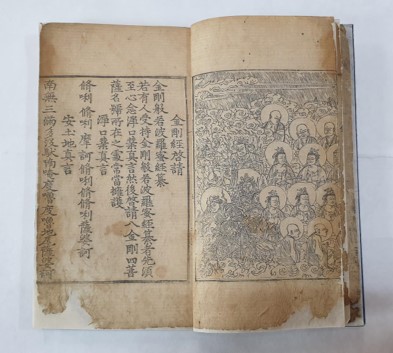 金剛經啓請
金剛般若波羅蜜經纂
若有人受持金剛般若波羅蜜經者先須
至心念淨口業真言然後啓請八金剛四菩
薩名號所在之處常當擁護
淨口業真言
脩唎脩唎摩訶脩唎脩脩唎薩婆訶
安土地真言
南無三滿多馱喃唵度嚕度嚕地尾薩婆訶